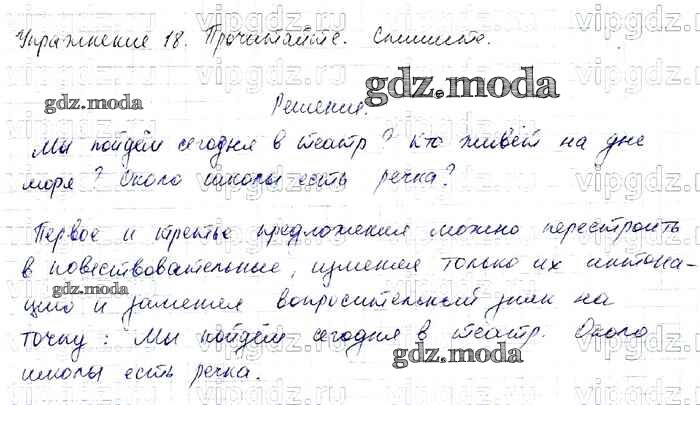 Упражнение 18. Прочитайте. Спишите.
Решение.
Мы пойдём сегодня в театр? Кто живёт на дне
моря? Около школы есть речка?
Первое и третье предложения можно перестроить
в повествовательные, изменяя только их интона-
цию и заменяя вопросительный знак на
точку: Мы пойдём сегодня в театр. Около
школы есть речка.
gdz.moda
gdz.moda
gdz.moda
gdz.moda
vipgdz.ru